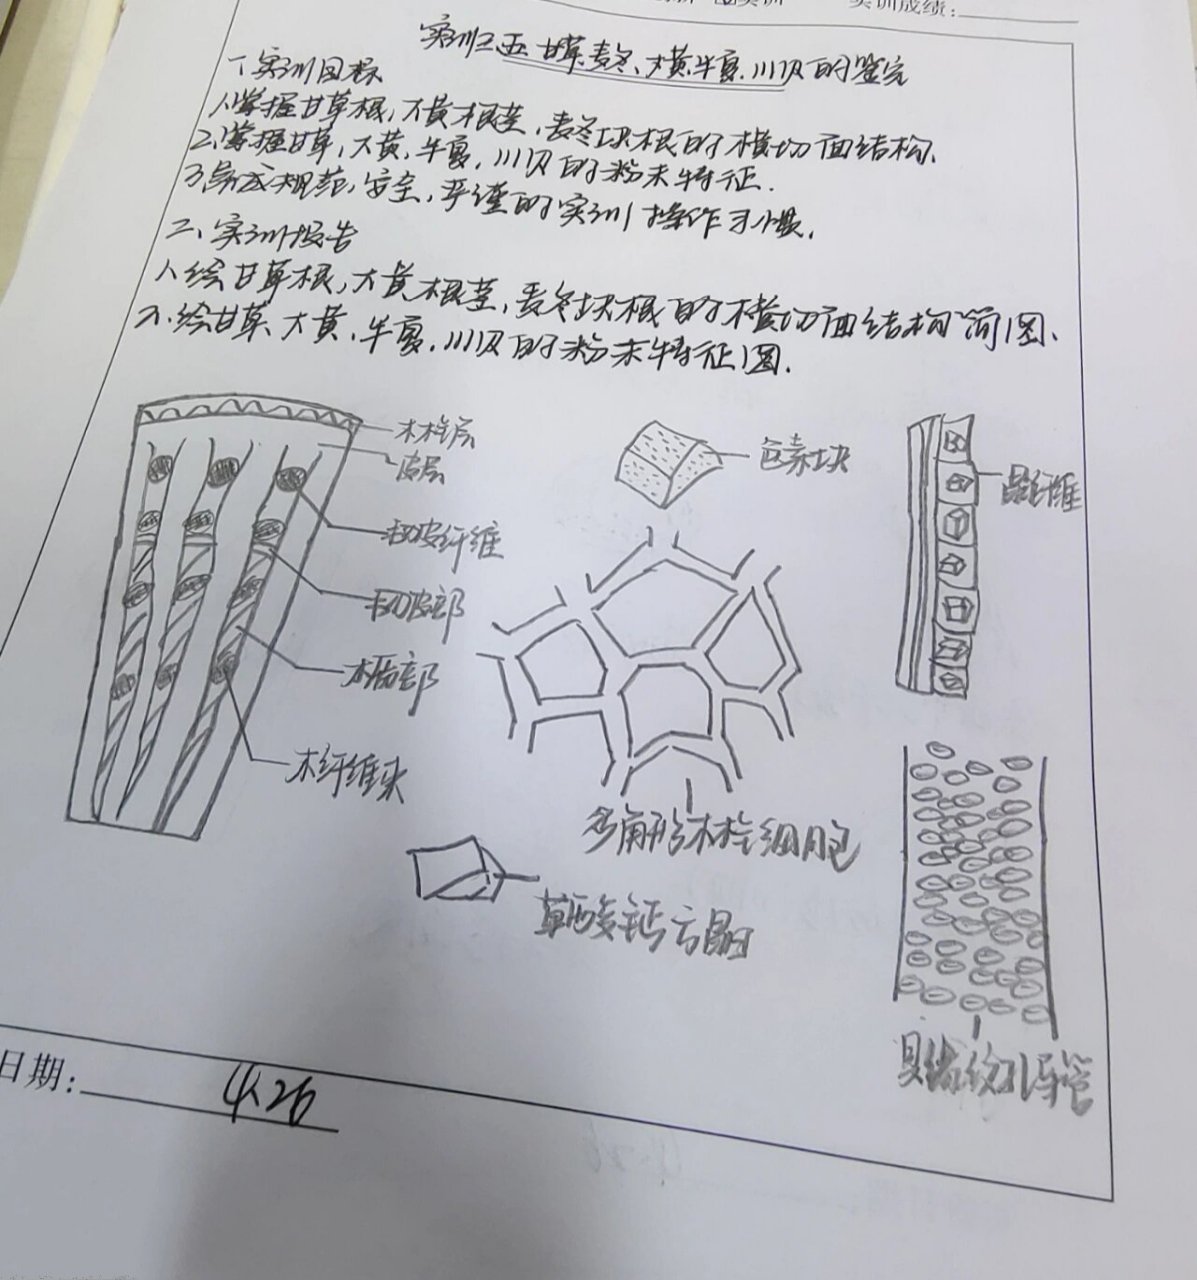 实训 实训成绩:
实训五 甘草、麦冬、大黄、半夏、川贝的鉴定
一、实训目标
1、掌握甘草根,大黄根茎,麦冬块根的横切面结构.
2、掌握甘草,大黄,半夏,川贝的粉末特征.
3.养成规范,安全,严谨的实训操作习惯.
二、实训报告
1、绘甘草根,大黄根茎,麦冬块根的横切面结构简图.
2.绘甘草、大黄,半夏,川贝的粉末特征图.
木栓层
皮层
韧皮纤维
韧皮部
木质部
木纤维束
色素块
晶纤维
多角形木栓细胞
草酸钙方晶
具缘纹孔导管
日期: 4.26